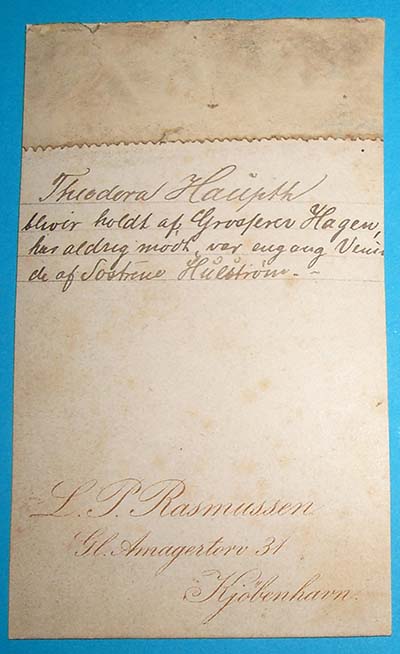 Theodora Haupth
blivir holdt af Grosserer Hagen,
har aldrig mödt, var engang Venin
de af Sostrene Hulström.-
L. P. Rasmussen
Gl. Amagertorv 31
Kjöbenhavn.